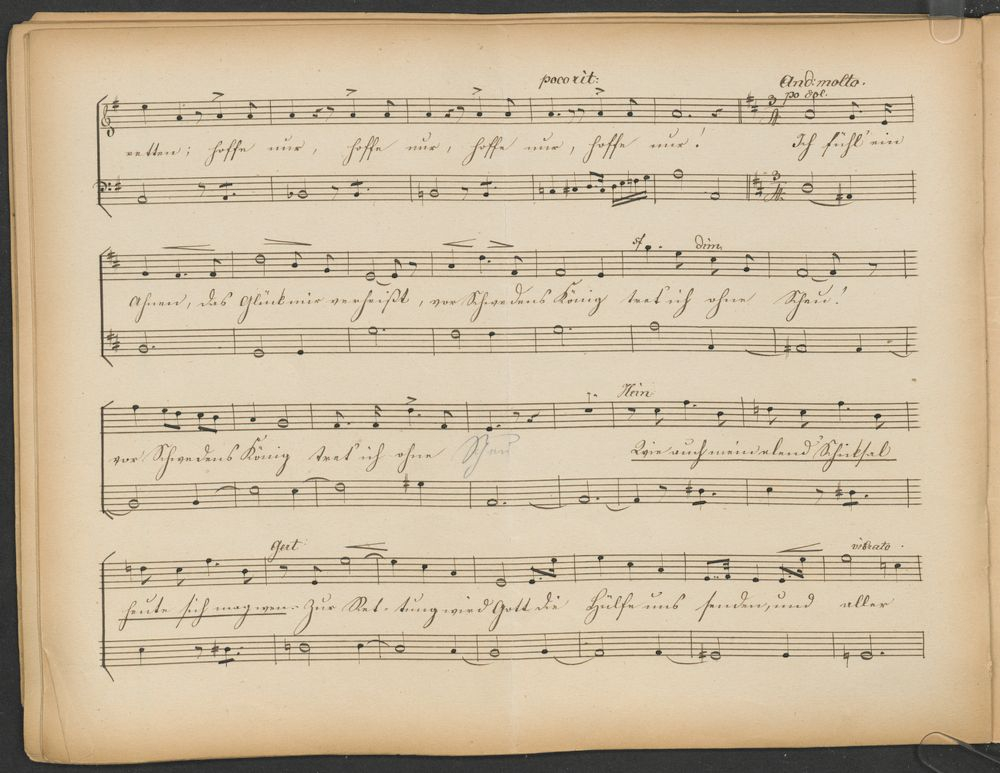 poco rit: And: molto.
retten; hoffe nur, hoffe nur, hoffe nur, hoffe nur! Ich fühl' ein
sf dim.
Ahnen, das Glück mir verheißt, vor Schwedens König tret ich ohne Scheu!
Hein
vor Schwedens König tret ich ohne Scheu Wie auch mein elend Schicksal
Gert vibrato.
heute sich mag wen- Zur Ret-tung wird Gott die Hülfe uns senden, und aller